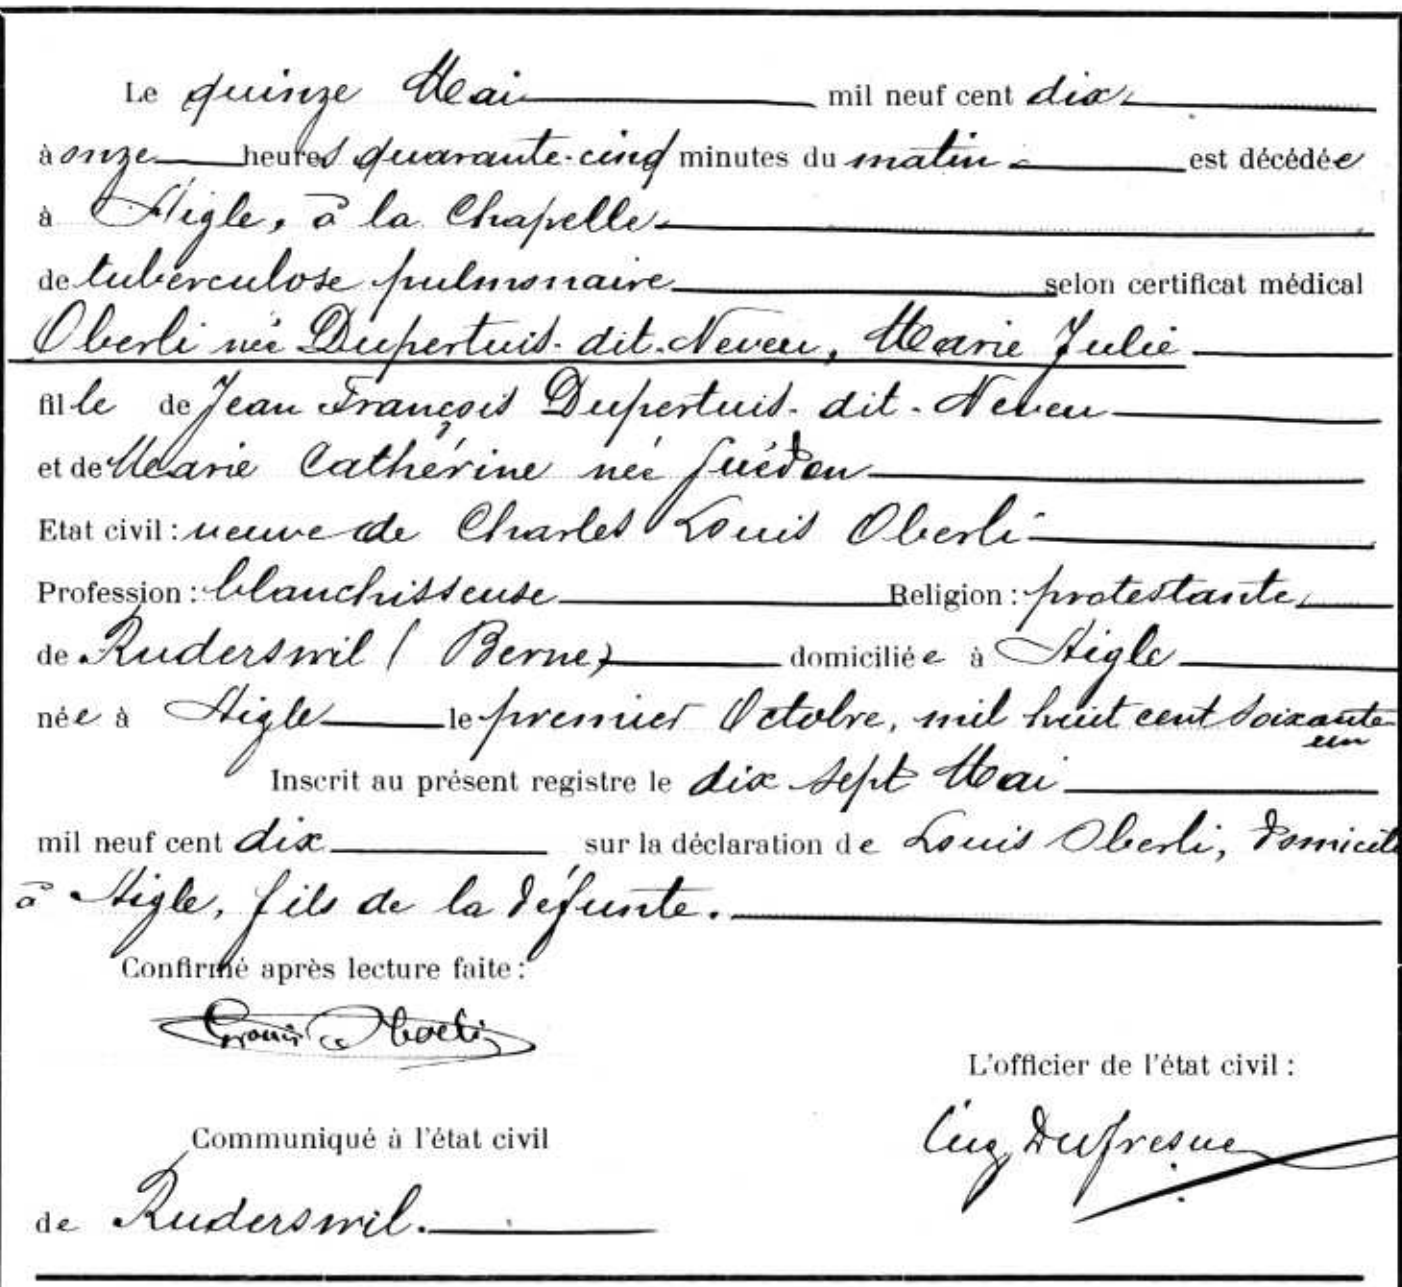 Le quinze Mai mil neuf cent dix
à onze heures quarante-cinq minutes du matin est décédée
à Aigle, à la Chapelle
de tuberculose pulmonaire selon certificat médical
Oberli née Dupertuis-dit-Neveu, Marie Julie
fille de Jean François Dupertuis-dit-Neveu
et de Marie Cathérine née
Etat civil: veuve de Charles Louis Oberli
Profession: blanchisseuse Religion: protestante
de Ruderswil (Berne) domiciliée à Aigle
née à Aigle le premier Octobre, mil huit cent soixante
un
Inscrit au présent registre le dix sept Mai
mil neuf cent dix sur la déclaration de Louis Oberli, domicilié
à Aigle, fils de la défunte.
Confirmé après lecture faite:
Louis Oberli
L'officier de l'état civil:
Communiqué à l'état civil
Eug Dufresne
de Ruderswil.